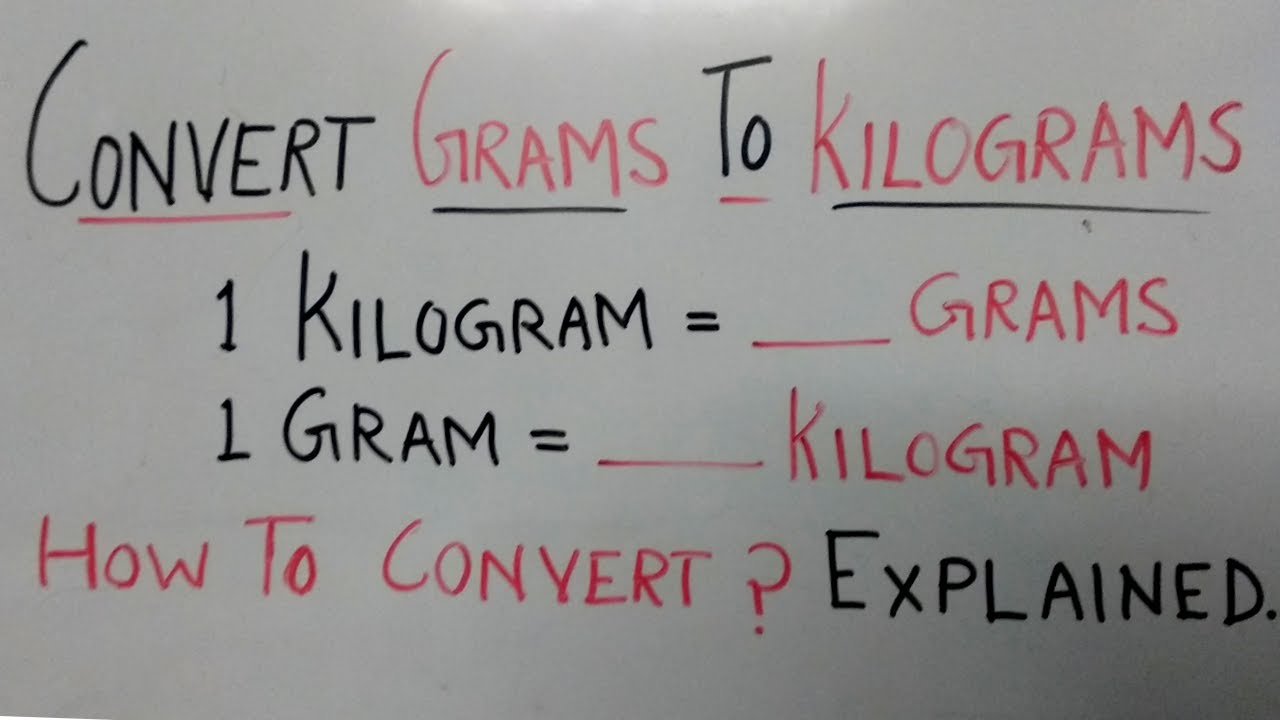 CONVERT GRAMS TO KILOGRAMS
1 KILOGRAM = ___ GRAMS
1 GRAM = ___ KILOGRAM
HOW TO CONVERT? EXPLAINED.